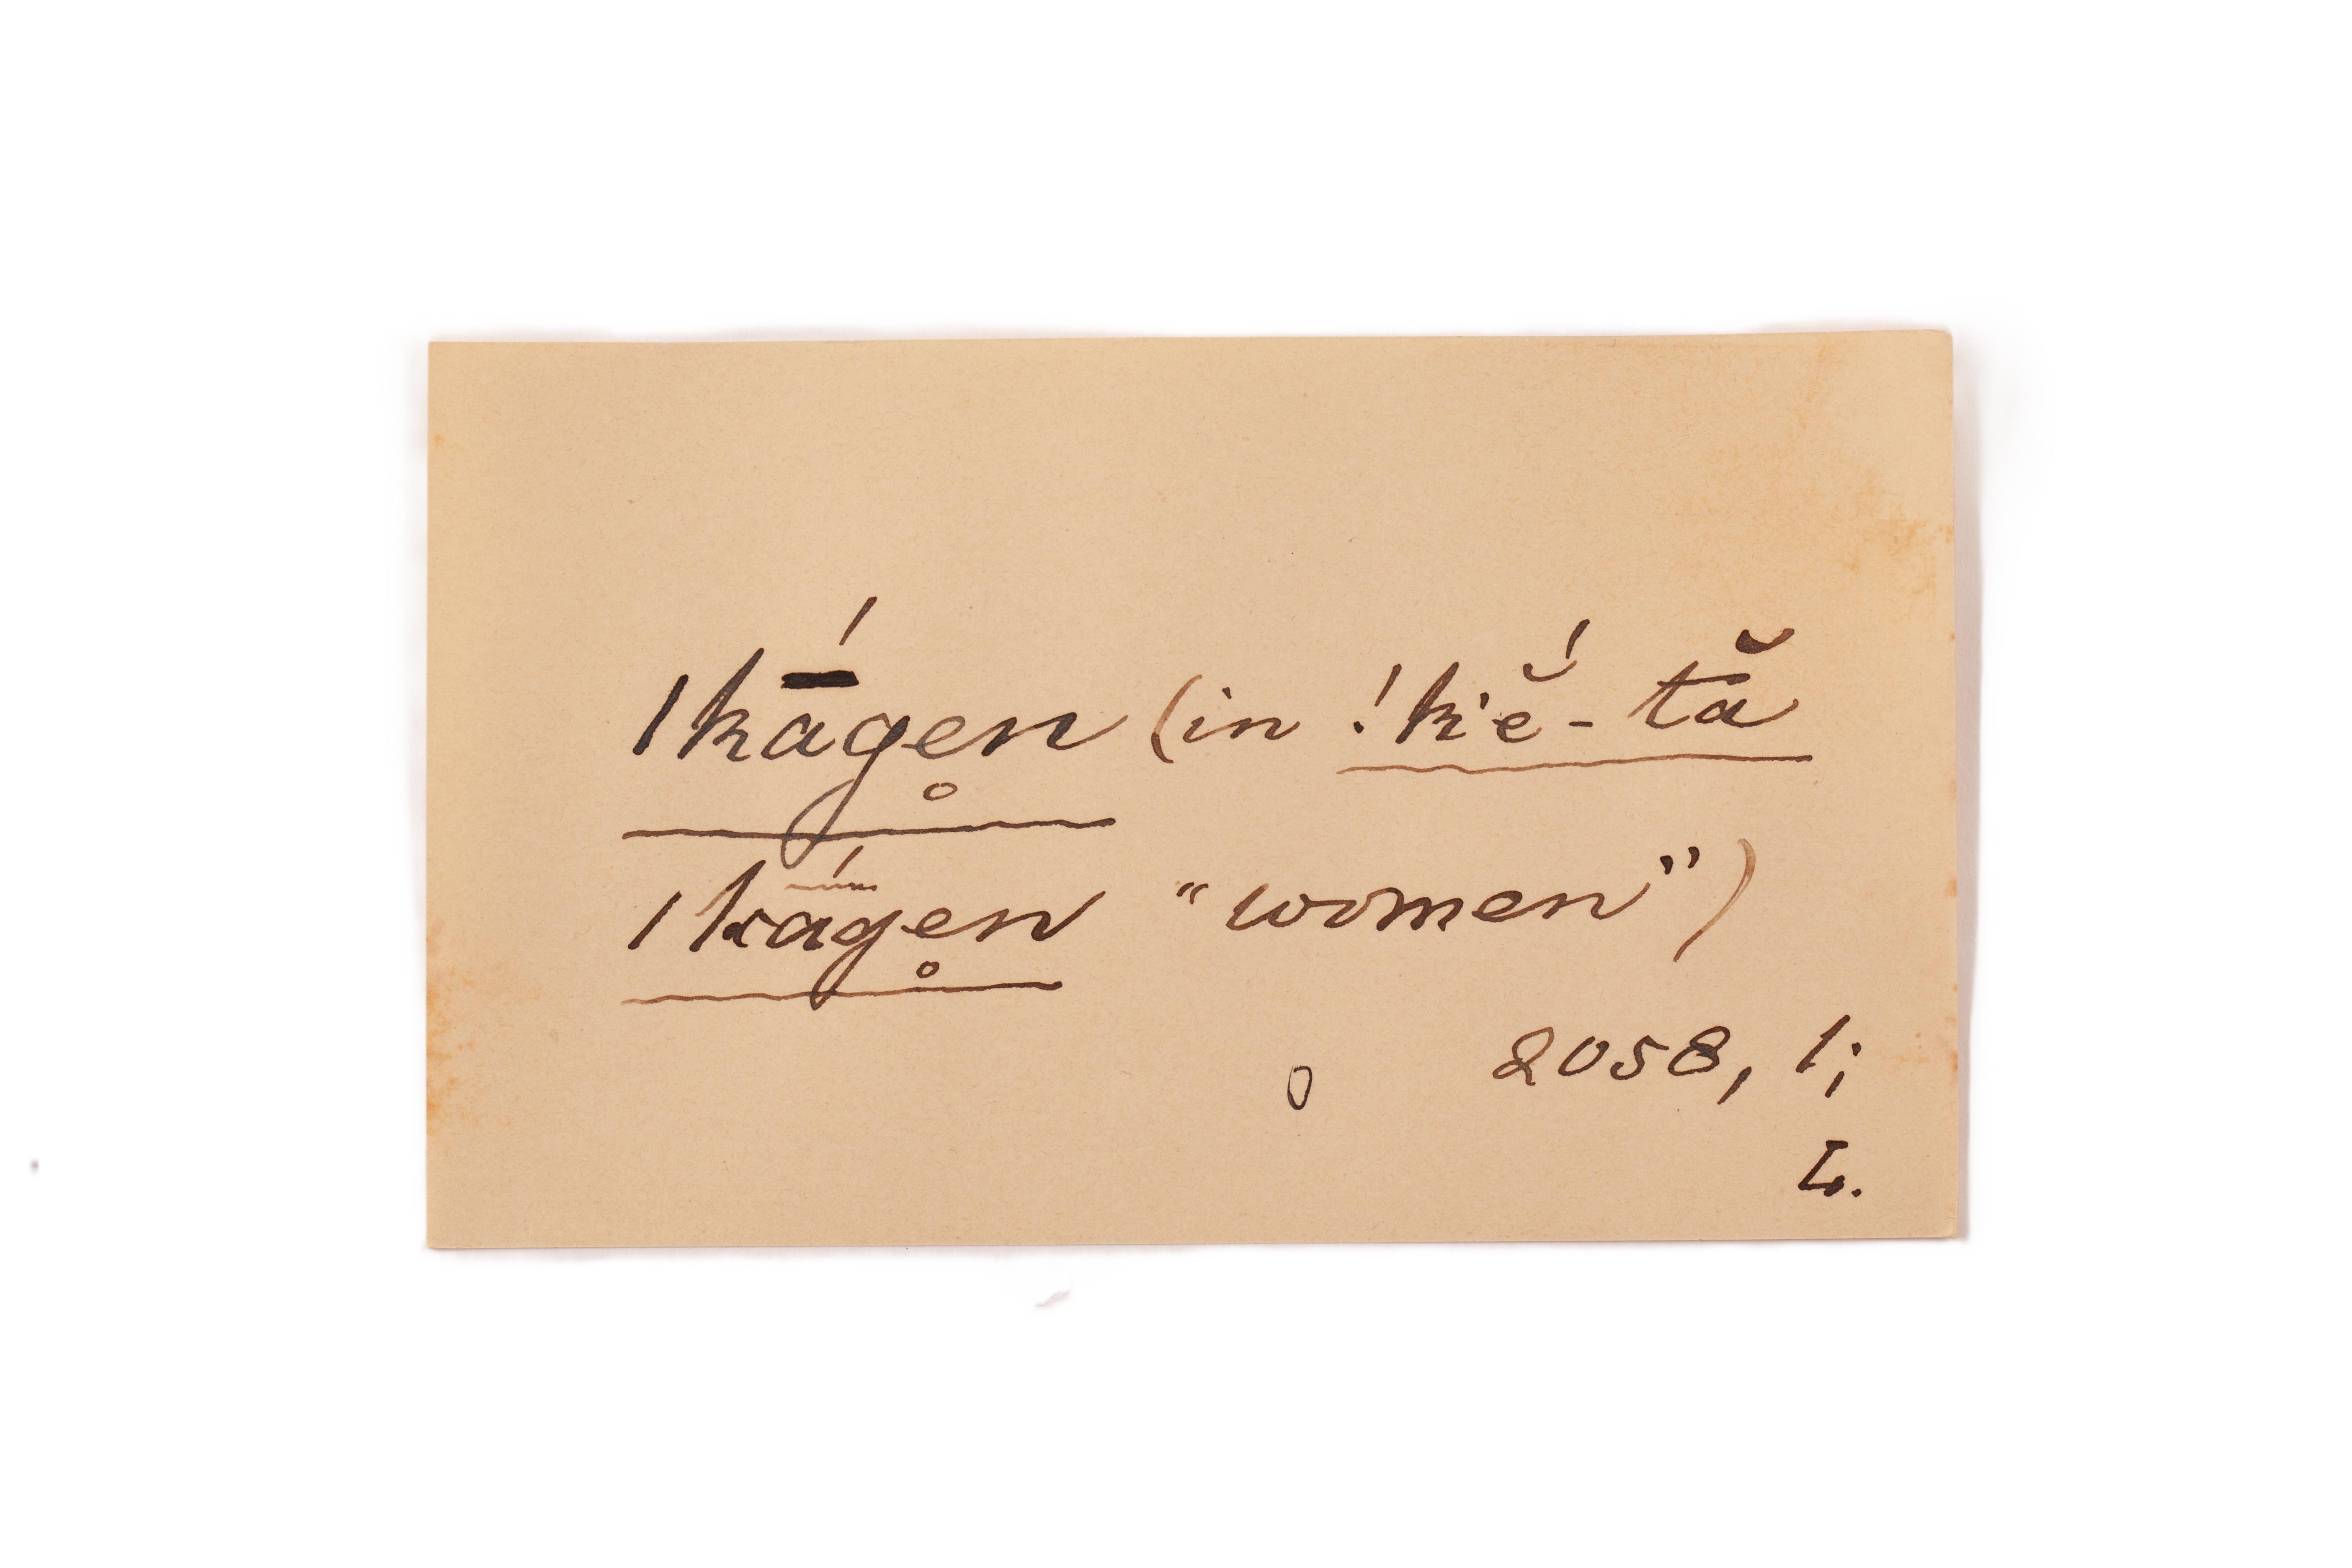 |kā́ge̥n (in !k'ĕ́-tă
|kā́ge̥n "women")
0 2058, 1;
L.